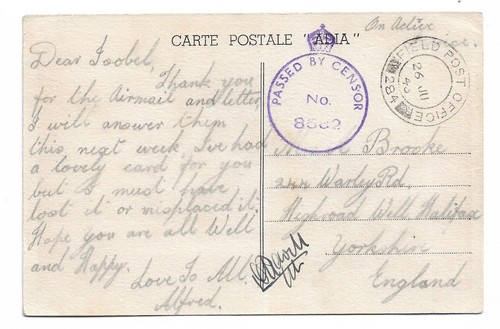 CARTE POSTALE "ADIA"
On Active
Dear Isobel,
Thank you
for the Airmail and letter
I will answer them
this next week. I've had
a lovely card for you
but I must have
lost it or misplaced it.
Hope you are all Well
and Happy.
Love To All.
Alfred.
PASSED BY CENSOR
No.
8562
FIELD POST OFFICE
284
26 JU
43
Brooke
Warley Rd,
Highroad Well Halifax
Yorkshire
England